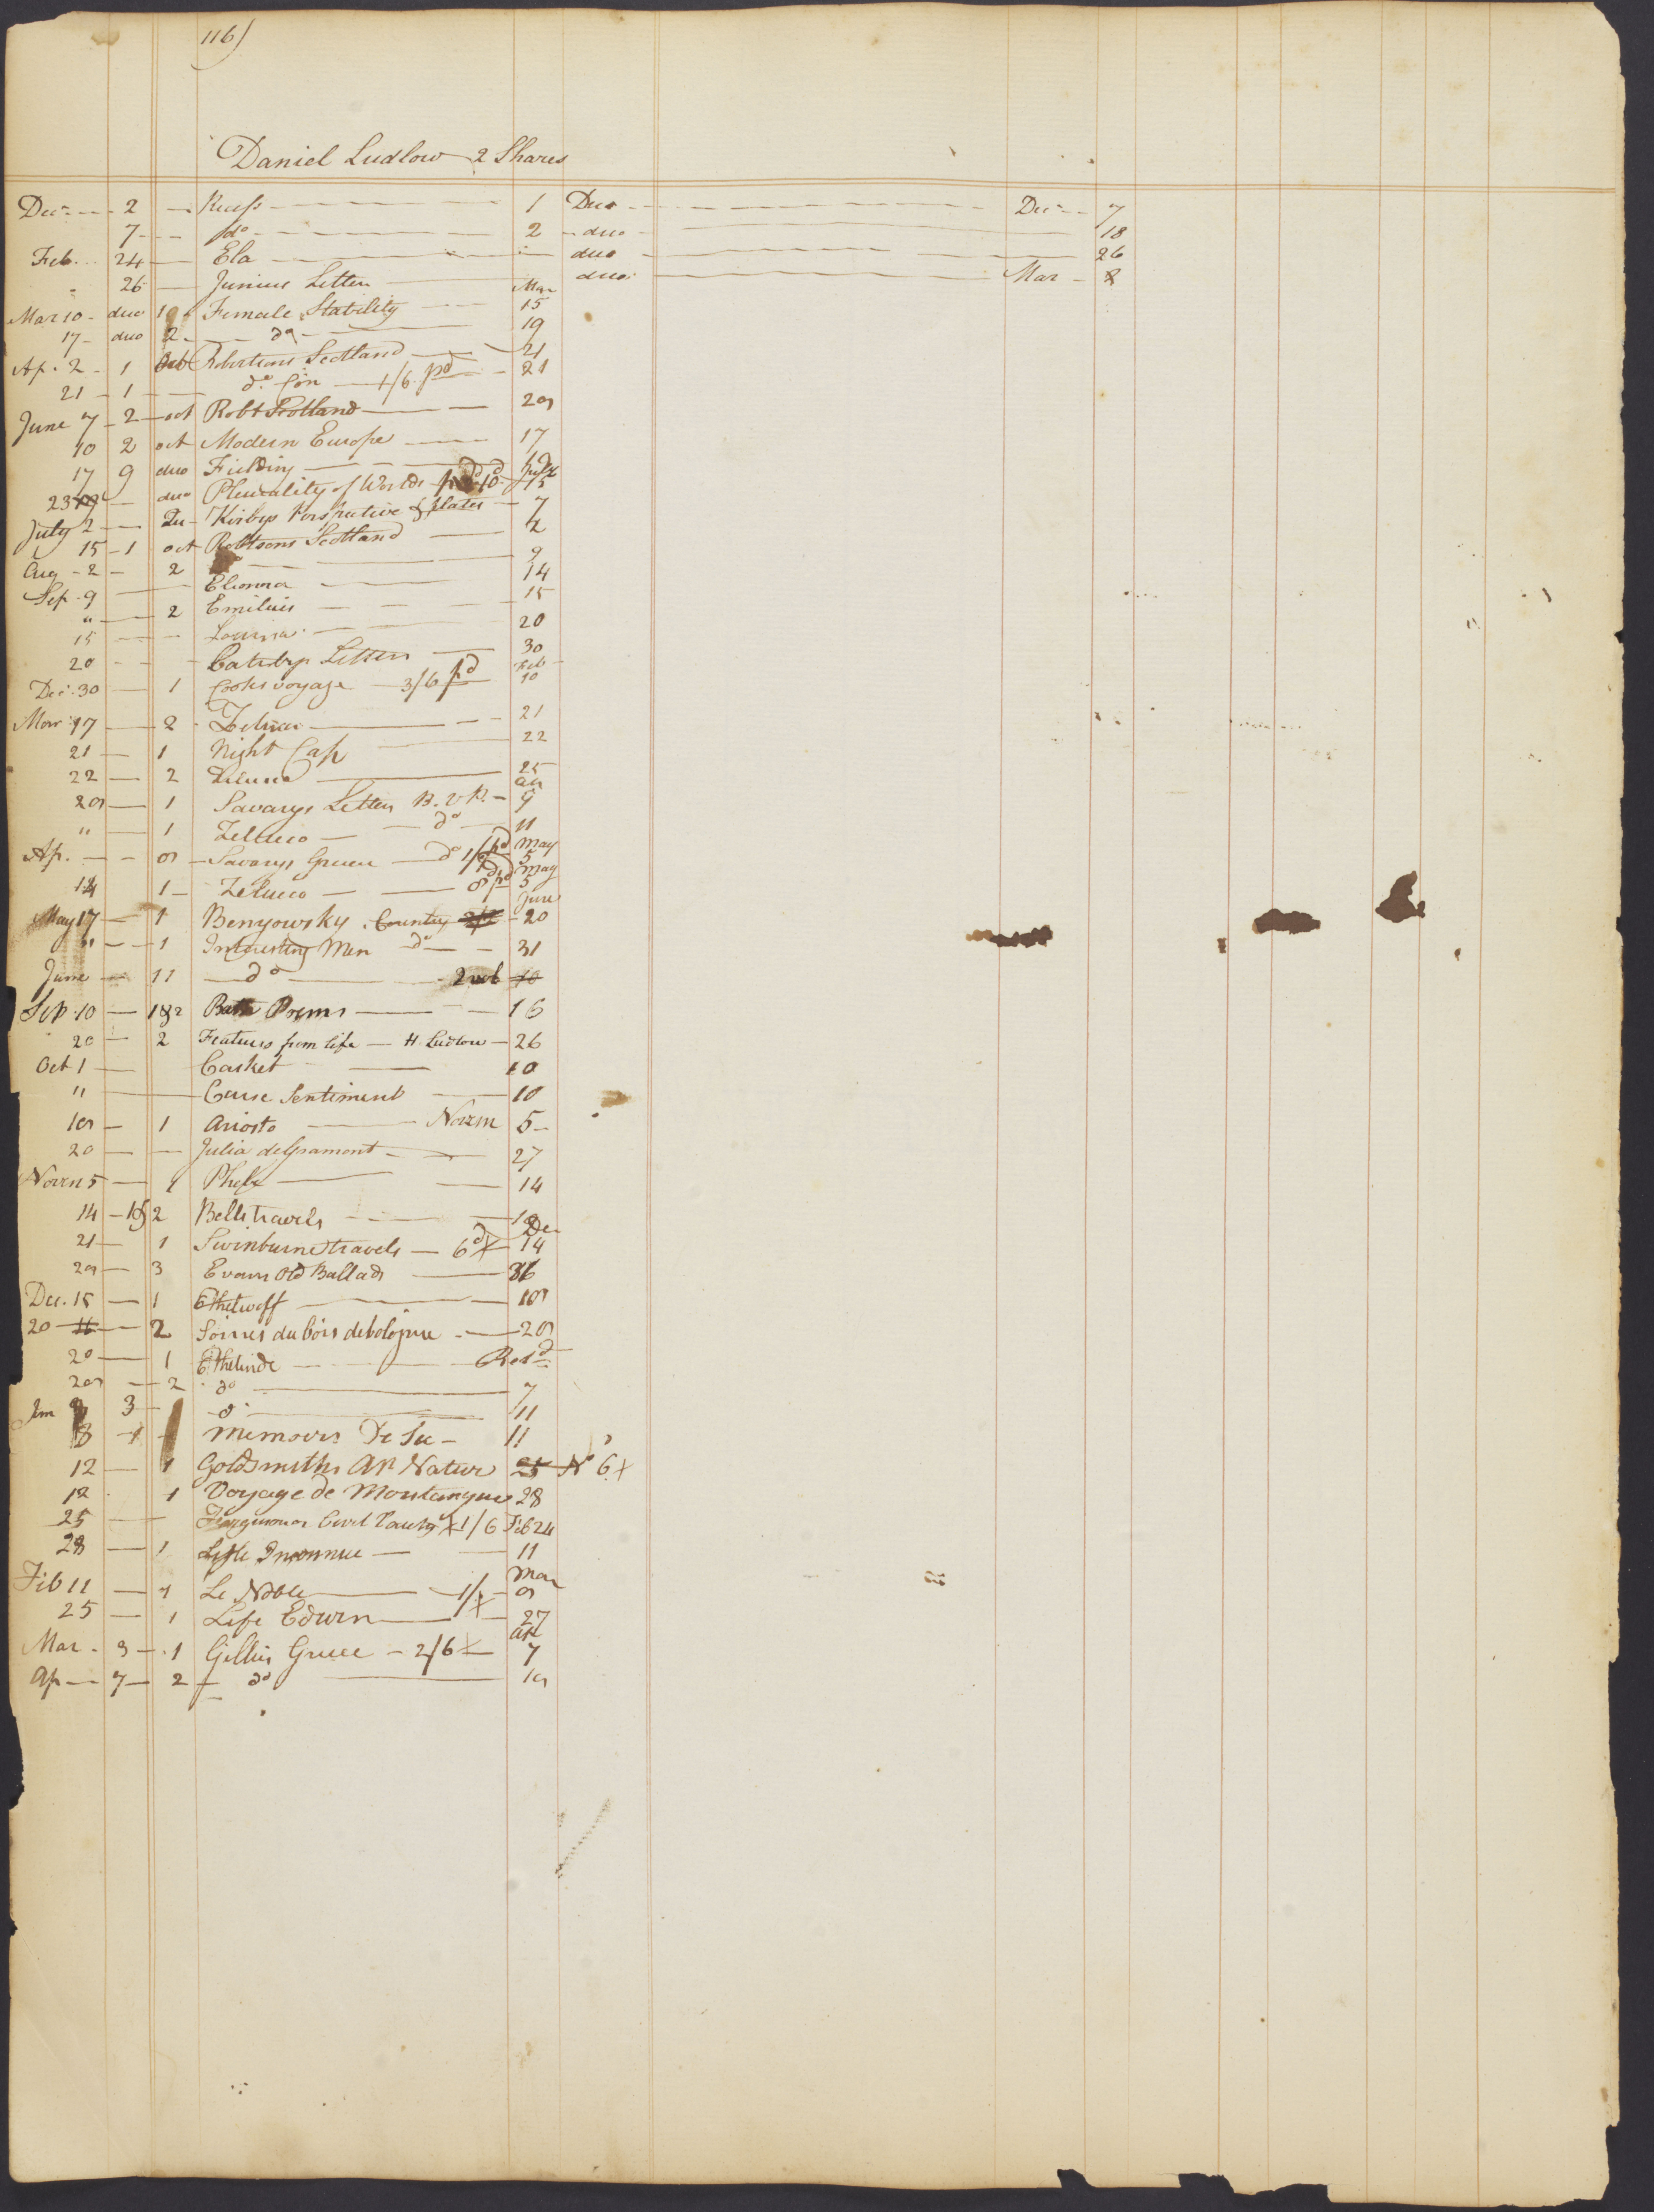 116)
Daniel Ludlow 2 Shares
Decr 2 Recess 1 Duo Decr 7
7 do 2 duo 18
Feb 24 Ela duo 26
" 26 Junius Letters duo Mar 8
Mar 10 duo 1 Female Stability Mar 15
17 duo 2 do 19
Ap. 2 1 Oct Robertsons Scotland 21
21 1 do Con 1/6 pd 21
June 7 2 oct Robt Scotland 29
10 2 oct Modern Europe 17
17 9 duo Fielding
23 duo Plurality of Worlds July 15
July 2 Qu Kirbys Perspective & plates 7
15 1 oct Robtsons Scotland 2
Aug 2 2 do 9
Sep. 9 Elionora 14
" 2 Emilius 15
15 Louisa 20
20 Catesbys Letters 30
Dec. 30 1 Cooks voyage 3/6 pd Feb 10
Mar 17 2 Zeluco 21
21 1 Night Cap 22
22 2 25
29 1 Savarys Letters B. V R. ap 9
" 1 Zelucco do 11
Ap. 9 Savarys Greece do pd May 5
14 1 Zelucco 9 pd May 5
May 17 1 Benyowsky Country June 20
1 Interesting Mem do 31
June 11 do 2 vol 10
Sep 10 1&2 Bath Poems 16
20 2 Features from life H. Ludlow 26
Oct 1 Casket 10
" Curse Sentiment 10
19 1 Ariosto Novem 5
20 Julia de Gramont 27
Novem 5 14
14 1&2 Bells travels 19
21 1 Swinburne travels 6d Dec 14
29 3 Evans Old Ballads 36
Dec. 15 1 Ethelwolf 19
20 16 2 Soirees du bois de bologne 29
20 1 Ethelinde Retd
29 2 do 7
Jan 3 do 11
8 1 Memoirs De Su 11
12 1 Goldsmiths An Nature 25 No 6
12 1 Voyage de Montaigne 28
25 Furgusson on Civil 1/6 Feb 24
28 1 Inconnue 11
Feb 11 1 Le Noble 1/ Mar 9
25 1 Life Edwin 27
Mar 9 1 Gillies Greece 2/6 ap 7
Ap 7 2 do 19